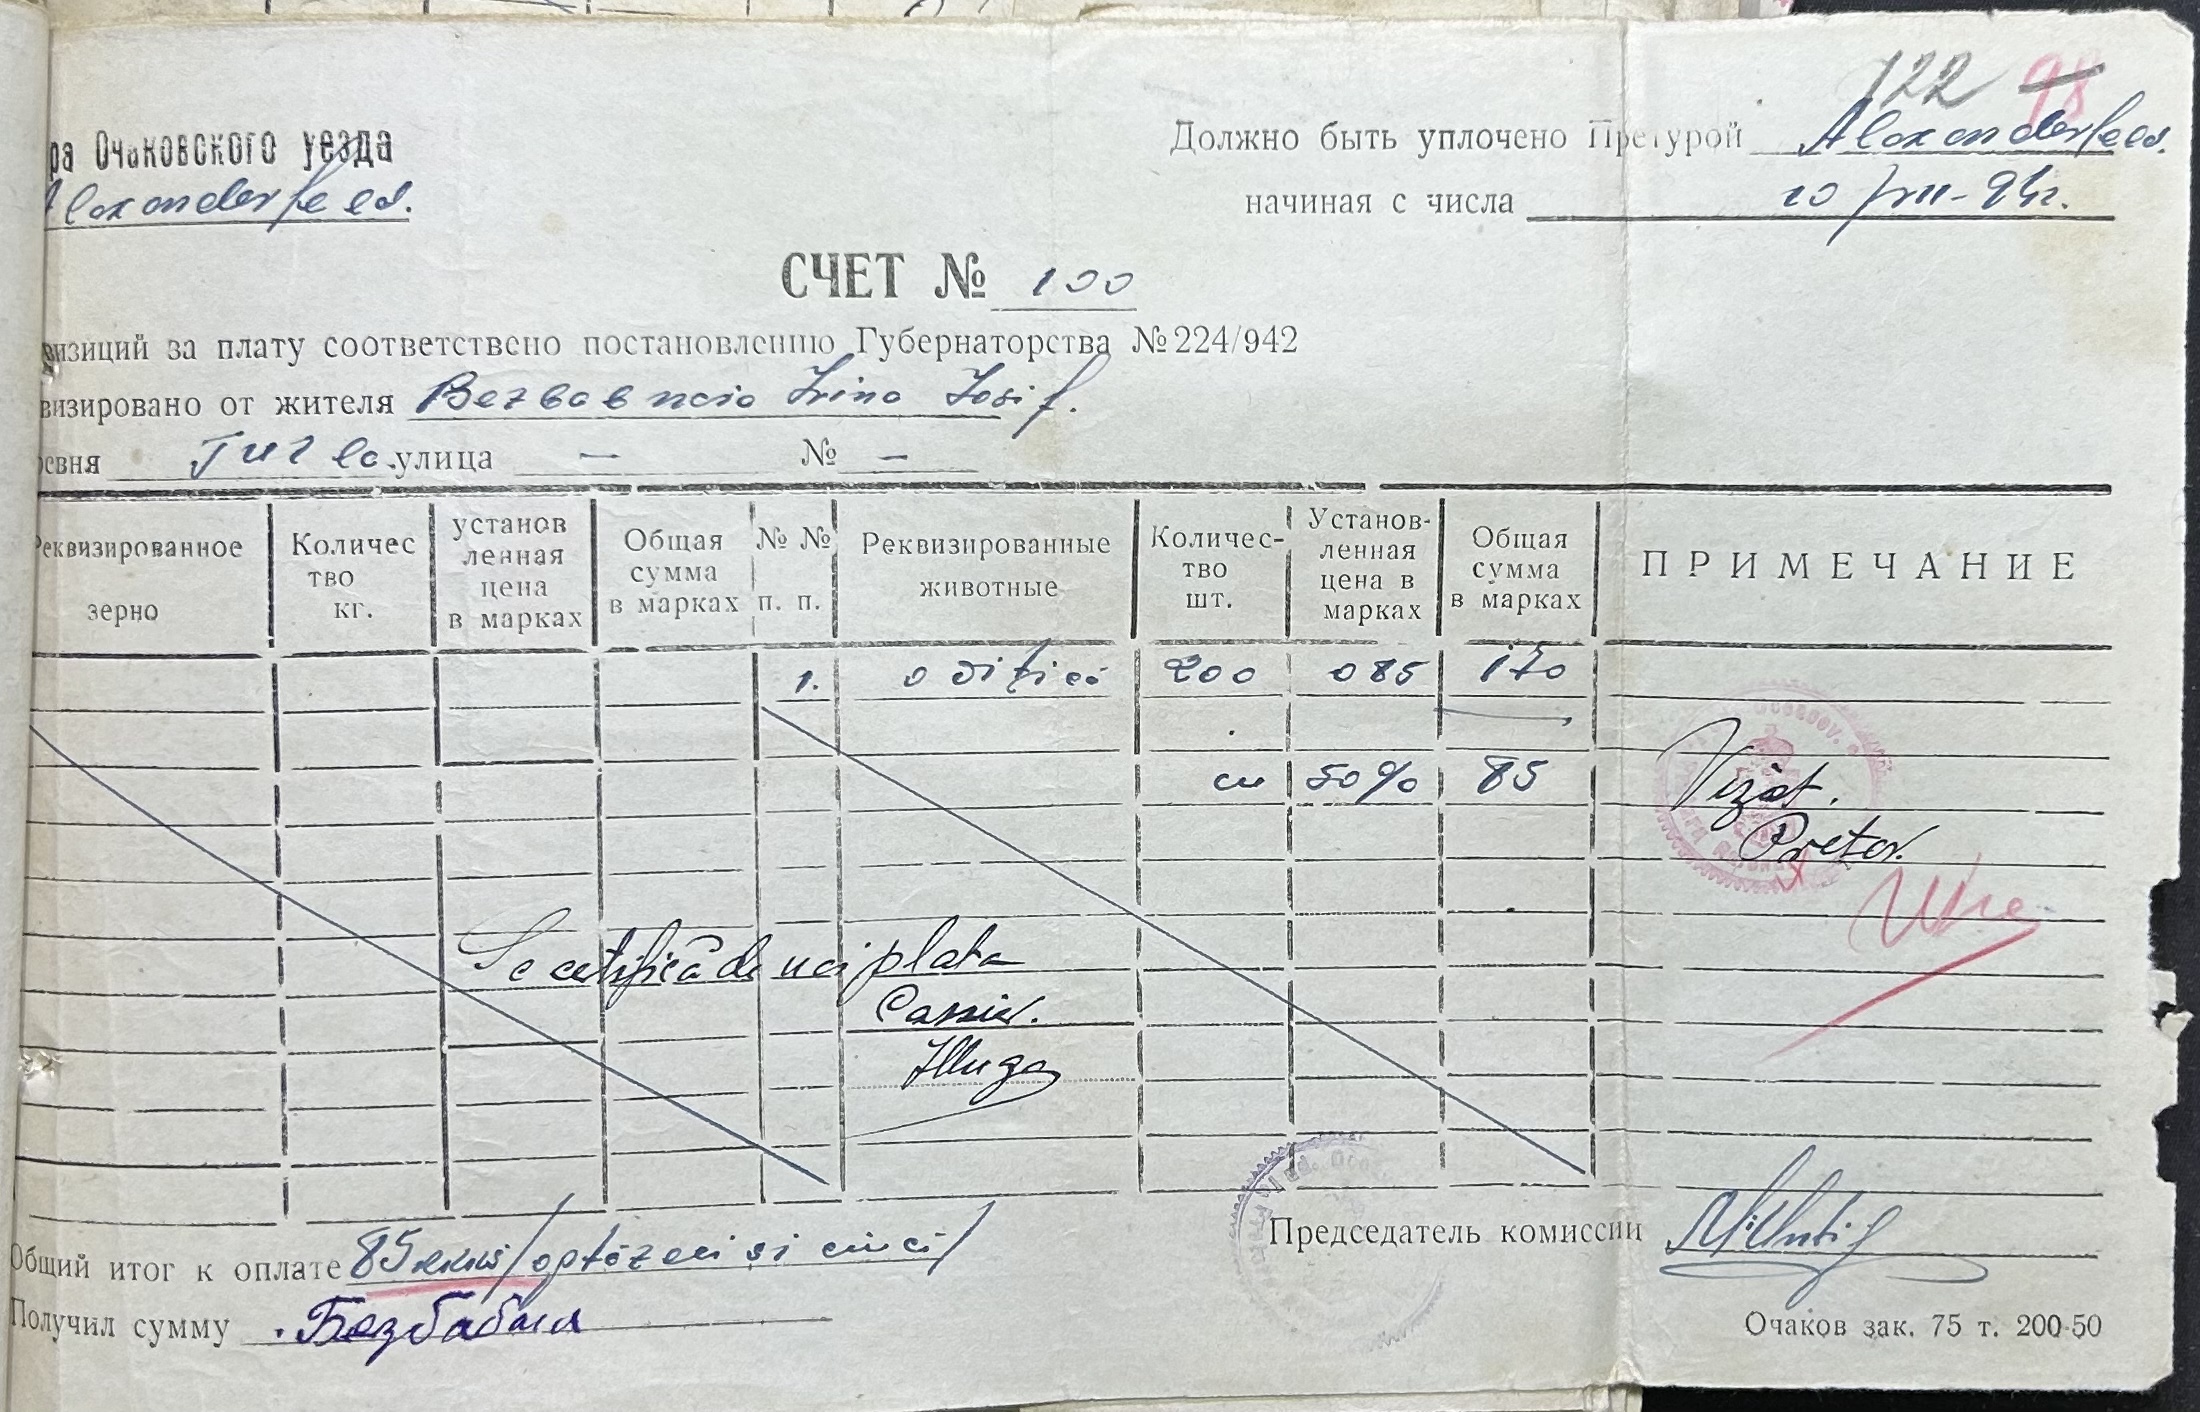 122 98
ра Очаковского уезда
Alexanderfeld.
Должно быть уплочено Претурой Alexanderfeld.
начиная с числа 20
СЧЕТ № 100
визиций за плату соответствено постановлению Губернаторства №224/942
визировано от жителя Bezbabnaia Irina Iosif.
евня улица — № —
Реквизированное зерно
Количес тво кг.
установ ленная цена в марках
Общая сумма в марках
№ № п. п.
Реквизированные животные
Количес- тво шт.
Установ- ленная цена в марках
Общая сумма в марках
ПРИМЕЧАНИЕ
1. o vițică 200 085 170
cu 50% 85
Vizat.
Pretor.
Se certifică de noi plata
Cassier.
Председатель комиссии
Общий итог к оплате 85 /optzeci și cinci/
Получил сумму Безбабная
Очаков зак. 75 т. 200-50